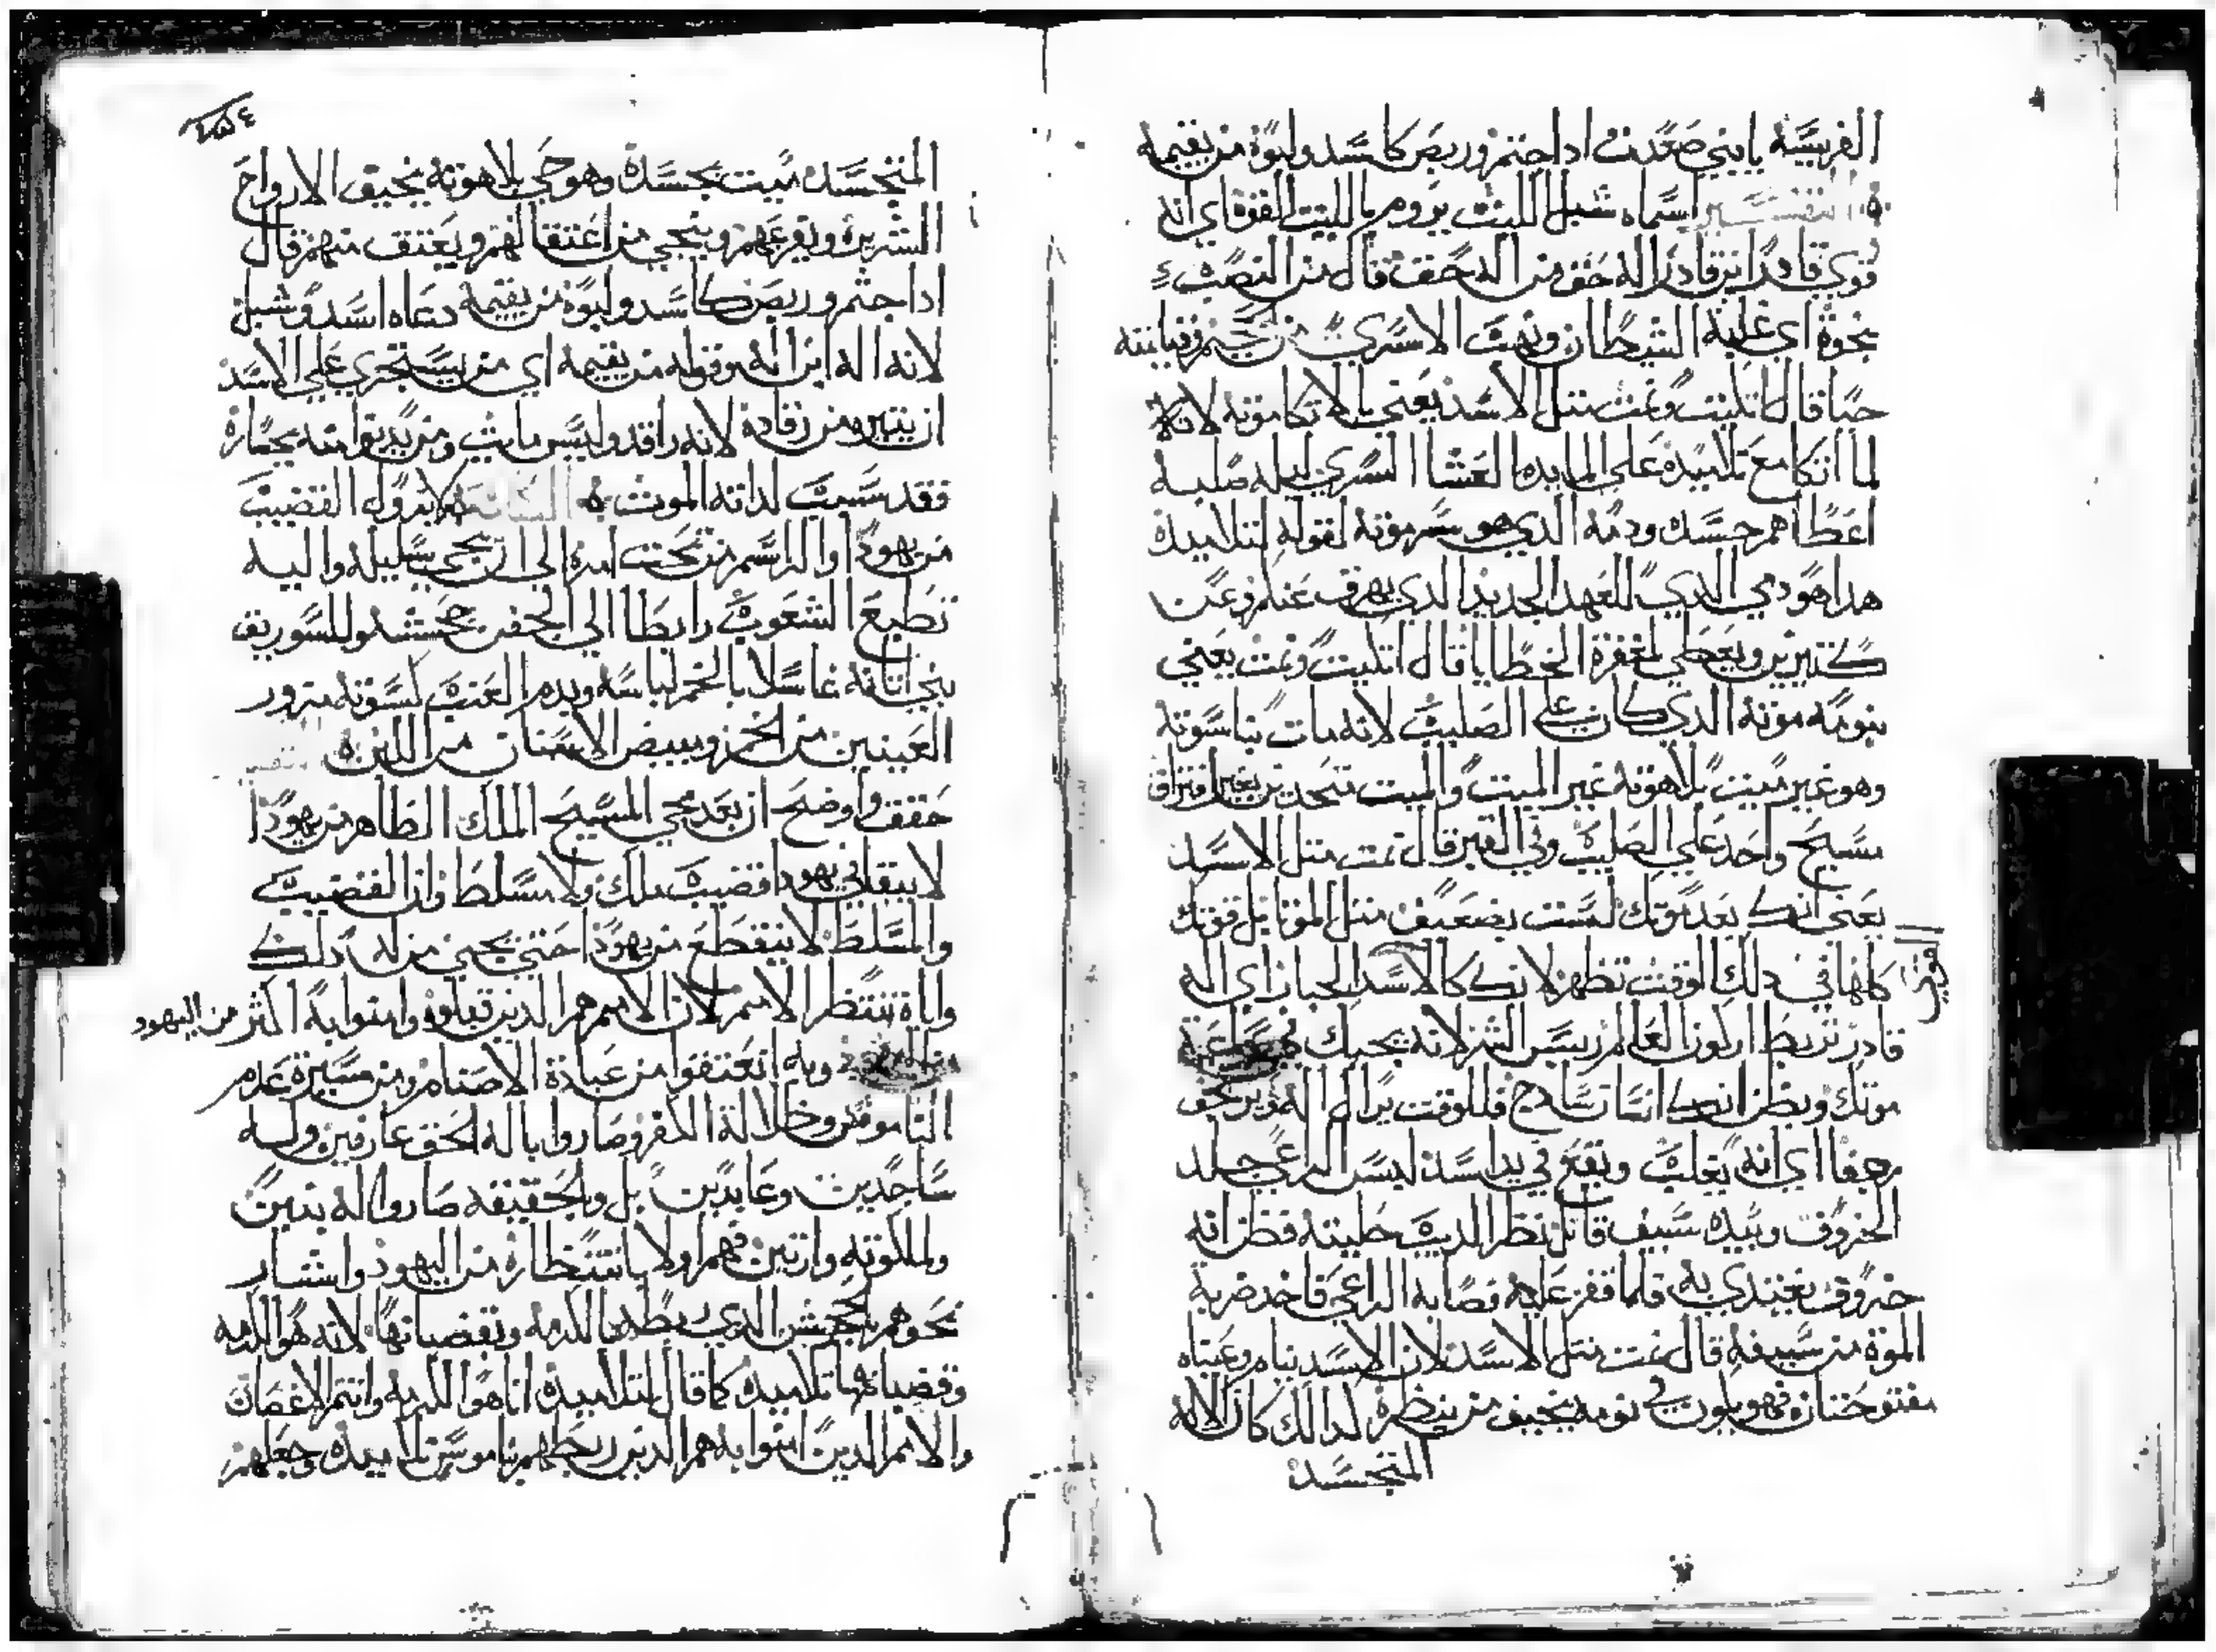 الفريسة يابني صعدت اداجتم وربض كاسد ولبوة من يقيمه
ه التفسير اسماه شبل الليث يروم بالليت القوة اي انه
قوي قادر ابن قادر اله حق من اله حق قال من النصبت
نحوة اي غلبة الشيطان ونهبت الاسري من حجيم وقيامته
حيا قال اتكيت ونمت متل الاسد يعني بالاتكا موته لانه
لما اتكا مع تلاميده علي المايده العشا السري ليلة صلبه
اعطاهم جسده ودمه الدي هو سر موته لقوله لتلاميده
هدا هو دمي الدي للعهد الجديد الدي يهرق عنكم وعن
كتيرين ويعطي لمغفرة الخطايا قال اتكيت ونمت يعني
بنومه موته الدي كان علي الصليب لانه مات بناسوته
وهو غير ميت بلاهوته غير الميت والميت متحدين بغير افتراق
مسيح واحد علي الصليب وفي القبر قال نمت متل الاسد
يعني انك بعد موتك لست بضعيف متل الموتا بل قوتك
كلها في دلك الوقت تظهر لانك كالاسد الجبار اي اله
القوي
قادر تربط اركون العالم رييس الشر لانه يجيك في ساعة
موتك ويظن انك انسان سادج فللوقت يراك اله
مرجفا اي انه يغلب ويقع في يد اسد لبس الراعي جلد
الخروف وبيده سيف قاتل نظر الديب حليته فظن انه
خروف يغتدي به فلما قفز عليه فصابه الراعي فاخد ضربة
الموة من سيفه قال نمت متل الاسد لان الاسد ينام وعيناه
مفتوحتان فهو يكون في نومه يخيف من ينظره لدالك كان الاله
المتجسد
المتجسد ميت بجسده وهو حي بلاهوته يخيف الارواح
الشريره ويفزعهم وينجي من اعتقالهم ويعتق منهم قال
اداجتم وربض كاسد ولبوة من يقيمه دعاه اسد وشبل
لانه اله ابن اله وقوله من يقيمه اي من يستجري علي الاسد
ان ينبهه من رقاده لانه راقد وليس مايت ومن يدنوا منه بجساره
فقد سبب لداته الموت ه لايزول القضيب
من يهودا والراسم من تحت امره الي ان يجي سليله واليه
تطيع الشعوب رابطا الي الجفن جحشه وللسوريق
بني اتانه غاسلا بالخمر لباسه وبدم العنب لسوته مزور
العينين من الخمر ومبيض الاسنان من اللبن ه تفسير
حقق واوضح ان بعد مجي المسيح الملك الطاهر من يهودا
لا يبقا في يهودا قضيب ملك ولا مسلط وان القضيب
والمسلط لا ينقطع من يهودا حتي يجي من له دلك
واياه تنتظر الامم لان الامم هم الدين قبلوه وامنوا به اكثر من اليهود
وبه انعتقوا من عبادة الاصنام ومن مسيرة عدم
الناموس وضلالة الكفر وصاروا باله الحق عارفين وله
ساجدين وعابدين بل وبالحقيقه صاروا له بنين
ولملكوته وارتين فهم اولا بانتظاره من اليهود واشار
نحوهم بالجحش الدي ربطه بالكرمه وبقضبانها لانه هو الكرمه
وقضبانها تلاميده كما قال لتلاميده انا هو الكرمه وانتم الاغصان
والامم الدين امنوا به هم الدين ربطهم بناموس تلاميده وجعلهم